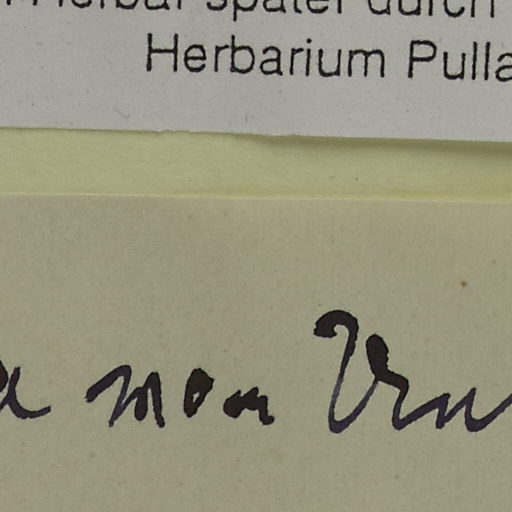 Herbar später durch
Herbarium Pulla
non